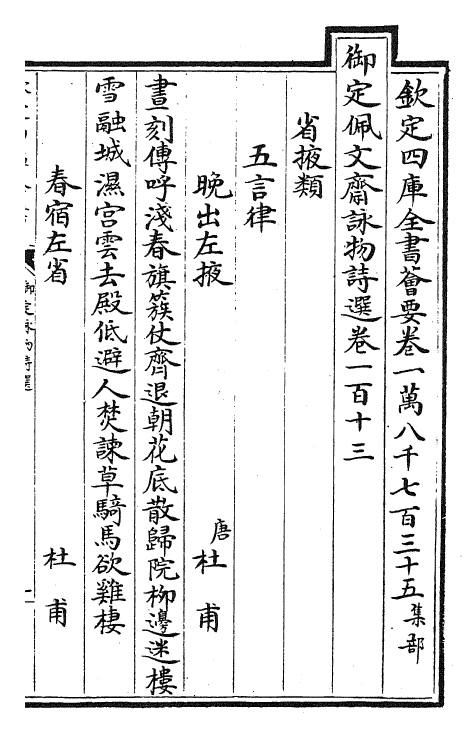 欽定四庫全書薈要卷一萬八千七百三十五集部
御定佩文齋詠物詩選卷一百十三
省掖類
五言律
晚出左掖 唐杜甫
晝刻傳呼淺春旗簇仗齊退朝花底散歸院柳邊迷樓
雪融城濕宮雲去殿低避人焚諫草騎馬欲雞棲
春宿左省 杜甫
御定詠物詩選